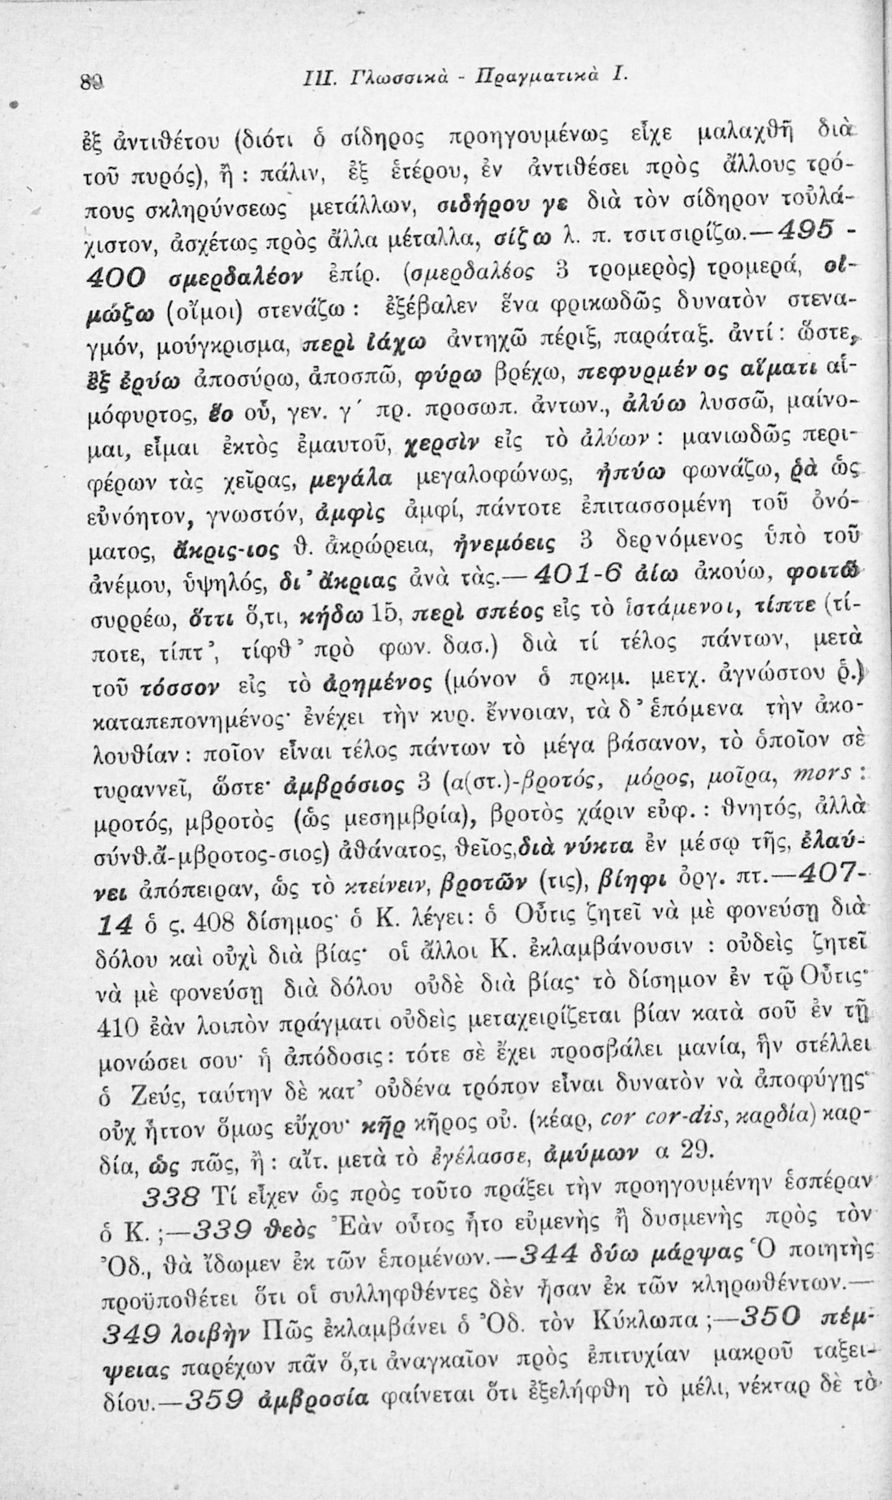 89 III. Γλωσσικὰ - Πραγματικὰ Ι.
ἐξ ἀντιθέτου (διότι ὁ σίδηρος προηγουμένως εἶχε μαλαχθῆ διὰ
τοῦ πυρός), ἢ : πάλιν, ἐξ ἑτέρου, ἐν ἀντιθέσει πρὸς ἄλλους τρό-
πους σκληρύνσεως μετάλλων, σιδήρου γε διὰ τὸν σίδηρον τοὐλά-
χιστον, ἀσχέτως πρὸς ἄλλα μέταλλα, σίζω λ. π. τσιτσιρίζω.—495 -
400 σμερδαλέον ἐπίρ. (σμερδαλέος 3 τρομερὸς) τρομερά, οἰ-
μώζω (οἴμοι) στενάζω : ἐξέβαλεν ἕνα φρικωδῶς δυνατὸν στενα-
γμόν, μούγκρισμα, περὶ ἰάχω ἀντηχῶ πέριξ, παράταξ. ἀντί : ὥστε,
ἐξ ἐρύω ἀποσύρω, ἀποσπῶ, φύρω βρέχω, πεφυρμένος αἵματι αἱ-
μόφυρτος, ἕο οὗ, γεν. γ΄ πρ. προσωπ. ἀντων., ἀλύω λυσσῶ, μαίνο-
μαι, εἶμαι ἐκτὸς ἐμαυτοῦ, χερσὶν εἰς τὸ ἀλύων : μανιωδῶς περι-
φέρων τὰς χεῖρας, μεγάλα μεγαλοφώνως, ἠπύω φωνάζω, ῥὰ ὡς
εὐνόητον, γνωστόν, ἀμφὶς ἀμφί, πάντοτε ἐπιτασσομένη τοῦ ὀνό-
ματος, ἄκρις-ιος θ. ἀκρώρεια, ἠνεμόεις 3 δερνόμενος ὑπὸ τοῦ
ἀνέμου, ὑψηλός, δι᾽ ἄκριας ἀνὰ τὰς.—401-6 ἀίω ἀκούω, φοιτῶ
συρρέω, ὅττι ὅ,τι, κήδω 15, περὶ σπέος εἰς τὸ ἱστάμενοι, τίπτε (τί-
ποτε, τίπτ᾽, τίφθ᾽ πρὸ φων. δασ.) διὰ τί τέλος πάντων, μετὰ
τοῦ τόσσον εἰς τὸ ἀρημένος (μόνον ὁ πρκμ. μετχ. ἀγνώστου ῥ.)
καταπεπονημένος· ἐνέχει τὴν κυρ. ἔννοιαν, τὰ δ᾽ ἑπόμενα τὴν ἀκο-
λουθίαν : ποῖον εἶναι τέλος πάντων τὸ μέγα βάσανον, τὸ ὁποῖον σὲ
τυραννεῖ, ὥστε· ἀμβρόσιος 3 (α(στ.)-βροτός, μόρος, μοῖρα, mors :
μροτός, μβροτὸς (ὡς μεσημβρία), βροτὸς χάριν εὐφ. : θνητός, ἀλλὰ
σύνθ.ἄ-μβροτος-σιος) ἀθάνατος, θεῖος,διὰ νύκτα ἐν μέσῳ τῆς, ἐλαύ-
νει ἀπόπειραν, ὡς τὸ κτείνειν, βροτῶν (τις), βίηφι ὀργ. πτ.—407-
14 ὁ ς. 408 δίσημος· ὁ Κ. λέγει : ὁ Οὖτις ζητεῖ νὰ μὲ φονεύσῃ διὰ
δόλου καὶ οὐχὶ διὰ βίας· οἱ ἄλλοι Κ. ἐκλαμβάνουσιν : οὐδεὶς ζητεῖ
νὰ μὲ φονεύσῃ διὰ δόλου οὐδὲ διὰ βίας· τὸ δίσημον ἐν τῷ Οὖτις·
410 ἐὰν λοιπὸν πράγματι οὐδεὶς μεταχειρίζεται βίαν κατὰ σοῦ ἐν τῇ
μονώσει σου· ἡ ἀπόδοσις : τότε σὲ ἔχει προσβάλει μανία, ἣν στέλλει
ὁ Ζεύς, ταύτην δὲ κατ᾽ οὐδένα τρόπον εἶναι δυνατὸν νὰ ἀποφύγῃς·
οὐχ ἧττον ὅμως εὔχου· κῆρ κῆρος οὐ. (κέαρ, cor cor-dis, καρδία) καρ-
δία, ὡς πῶς, ἢ : αἴτ. μετὰ τὸ ἐγέλασσε, ἀμύμων α 29.
338 Τί εἶχεν ὡς πρὸς τοῦτο πράξει τὴν προηγουμένην ἑσπέραν
ὁ Κ. ;—339 θεὸς Ἐὰν οὗτος ἦτο εὐμενὴς ἢ δυσμενὴς πρὸς τὸν
Ὀδ., θὰ ἴδωμεν ἐκ τῶν ἑπομένων.—344 δύω μάρψας Ὁ ποιητὴς
προϋποθέτει ὅτι οἱ συλληφθέντες δὲν ἦσαν ἐκ τῶν κληρωθέντων.—
349 λοιβὴν Πῶς ἐκλαμβάνει ὁ Ὀδ. τὸν Κύκλωπα ;—350 πέμ-
ψειας παρέχων πᾶν ὅ,τι ἀναγκαῖον πρὸς ἐπιτυχίαν μακροῦ ταξει-
δίου.—359 ἀμβροσία φαίνεται ὅτι ἐξελήφθη τὸ μέλι, νέκταρ δὲ τὸ